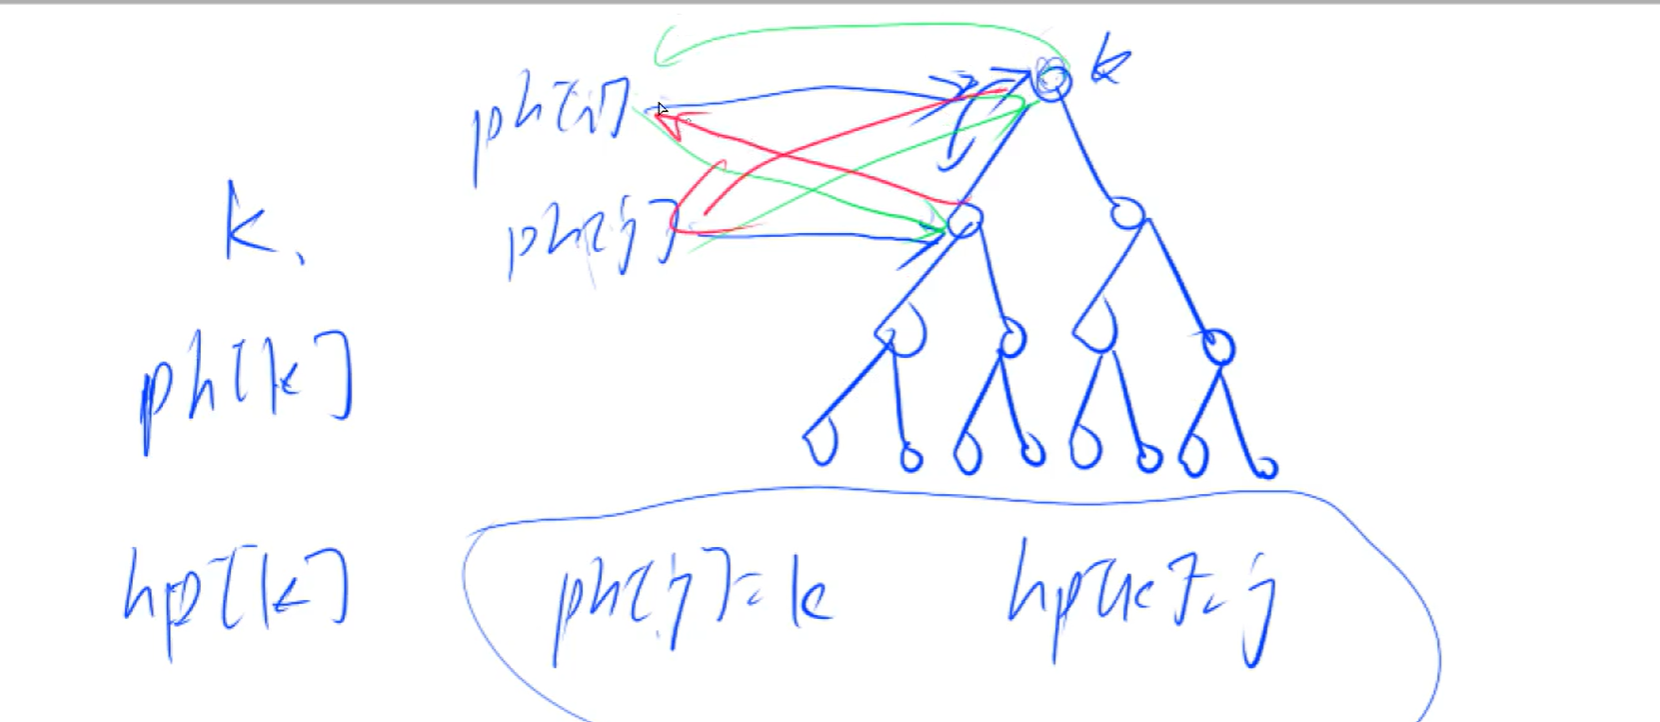 k
ph[i]
k,
ph[j]
ph[k]
hp[k]
ph[j]=k hp[k]=j